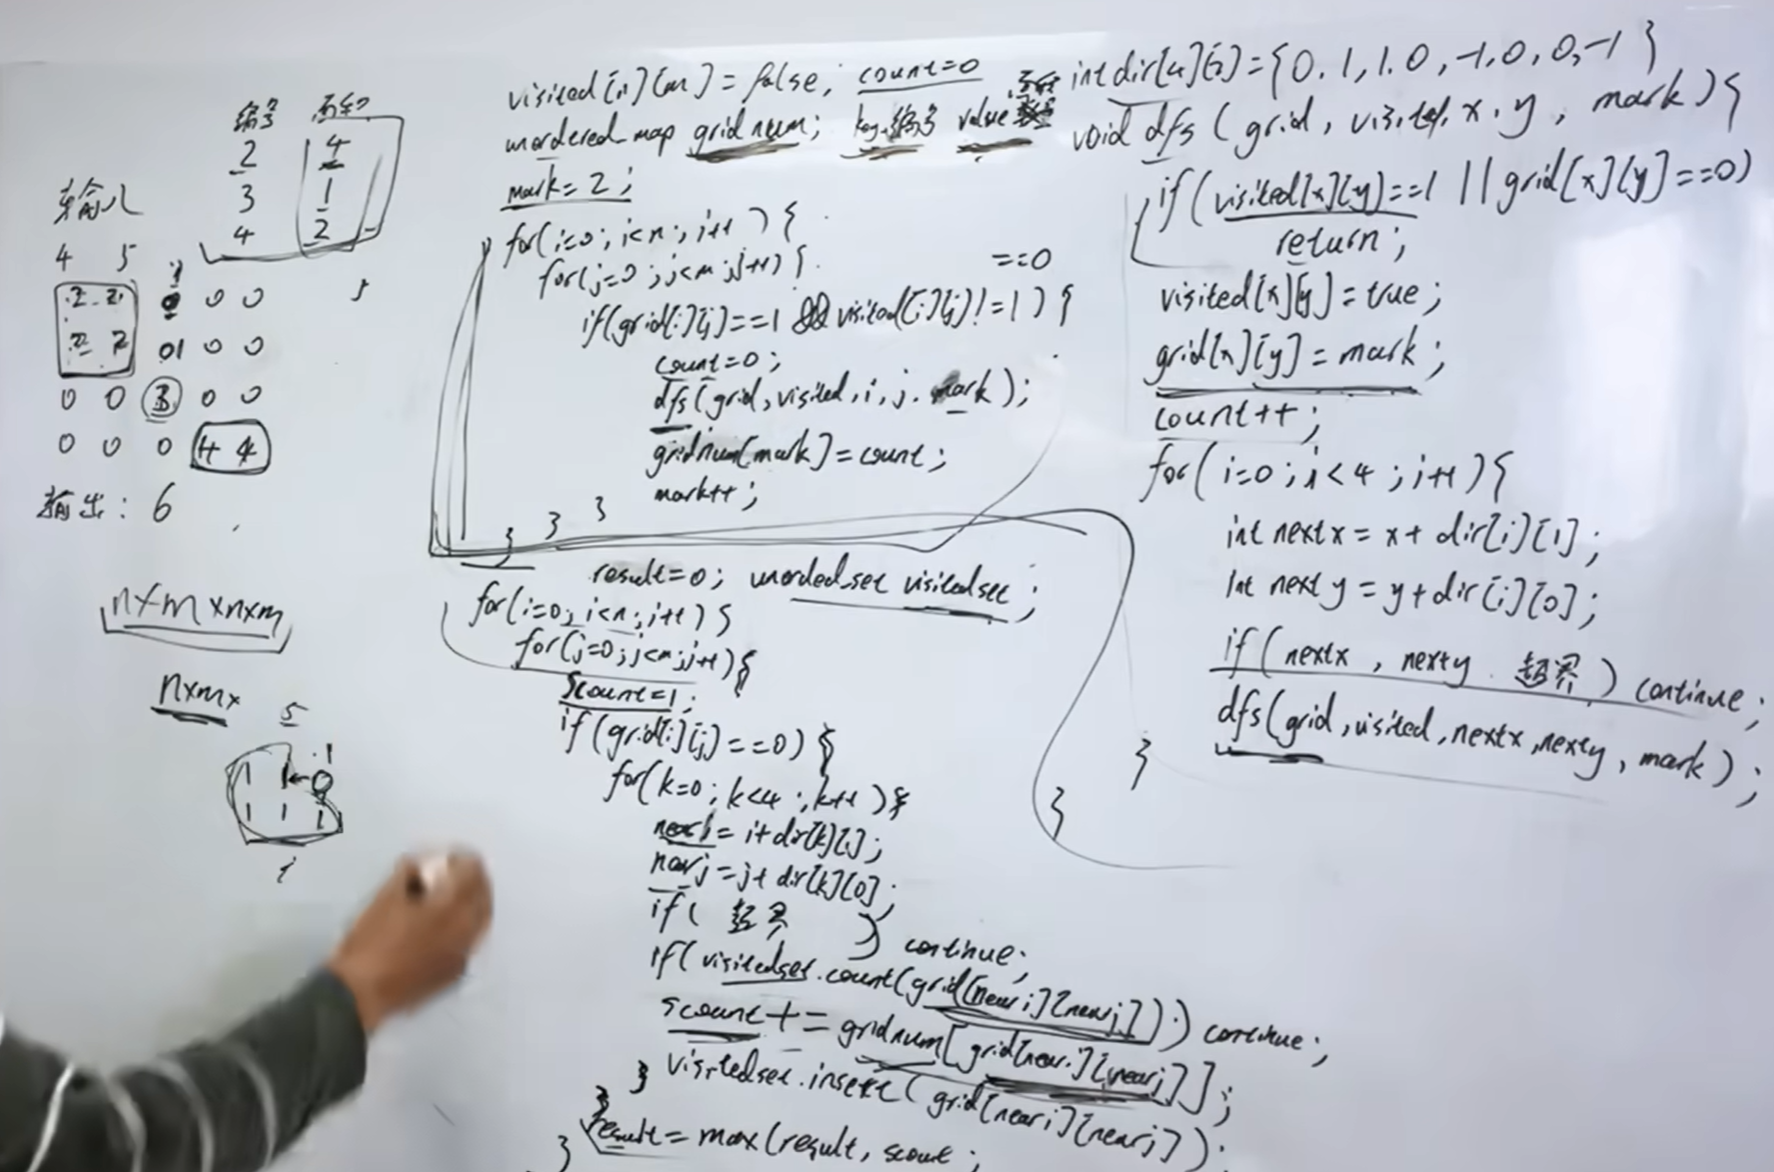 编号 面积
2 4
3 1
4 2
输入
4 5
2 2 0 0 0
2 2 0 0 0
0 0 3 0 0
0 0 0 4 4
输出: 6
n×m×n×m
n×m×
5
1
1 1 ← 0
1 1 1
i
visited[n][m] = false, count=0
unordered_map gridnum; key:编号 value 面积
mark=2;
for(i=0; i<n; i++) {
for(j=0; j<m; j++) {
==0
if(grid[i][j]==1 && visited[i][j]!=1) {
count=0;
dfs(grid,visited,i,j,mark);
gridnum[mark]=count;
mark++;
} } }
result=0; unorded_set visitedset;
for(i=0; i<n; i++) {
for(j=0; j<m; j++) {
scount=1;
if(grid[i][j]==0) {
for(k=0; k<4; k++) {
neari=i+dir[k][1];
nearj=j+dir[k][0];
if( 越界 ) continue;
if(visitedset.count(grid[neari][nearj])) continue;
scount+=gridnum[grid[neari][nearj]];
visitedset.insert(grid[neari][nearj]);
}
}
result=max(result, scount;
}
int dir[4][2]={0,1,1,0,-1,0,0,-1}
void dfs(grid, visited, x, y, mark) {
if(visited[x][y]==1 || grid[x][y]==0)
return;
visited[x][y]=true;
grid[x][y]=mark;
count++;
for(i=0; i<4; i++) {
int nextx=x+dir[i][1];
int nexty=y+dir[i][0];
if(nextx, nexty 越界) continue;
dfs(grid,visited,nextx,nexty,mark);
}
}